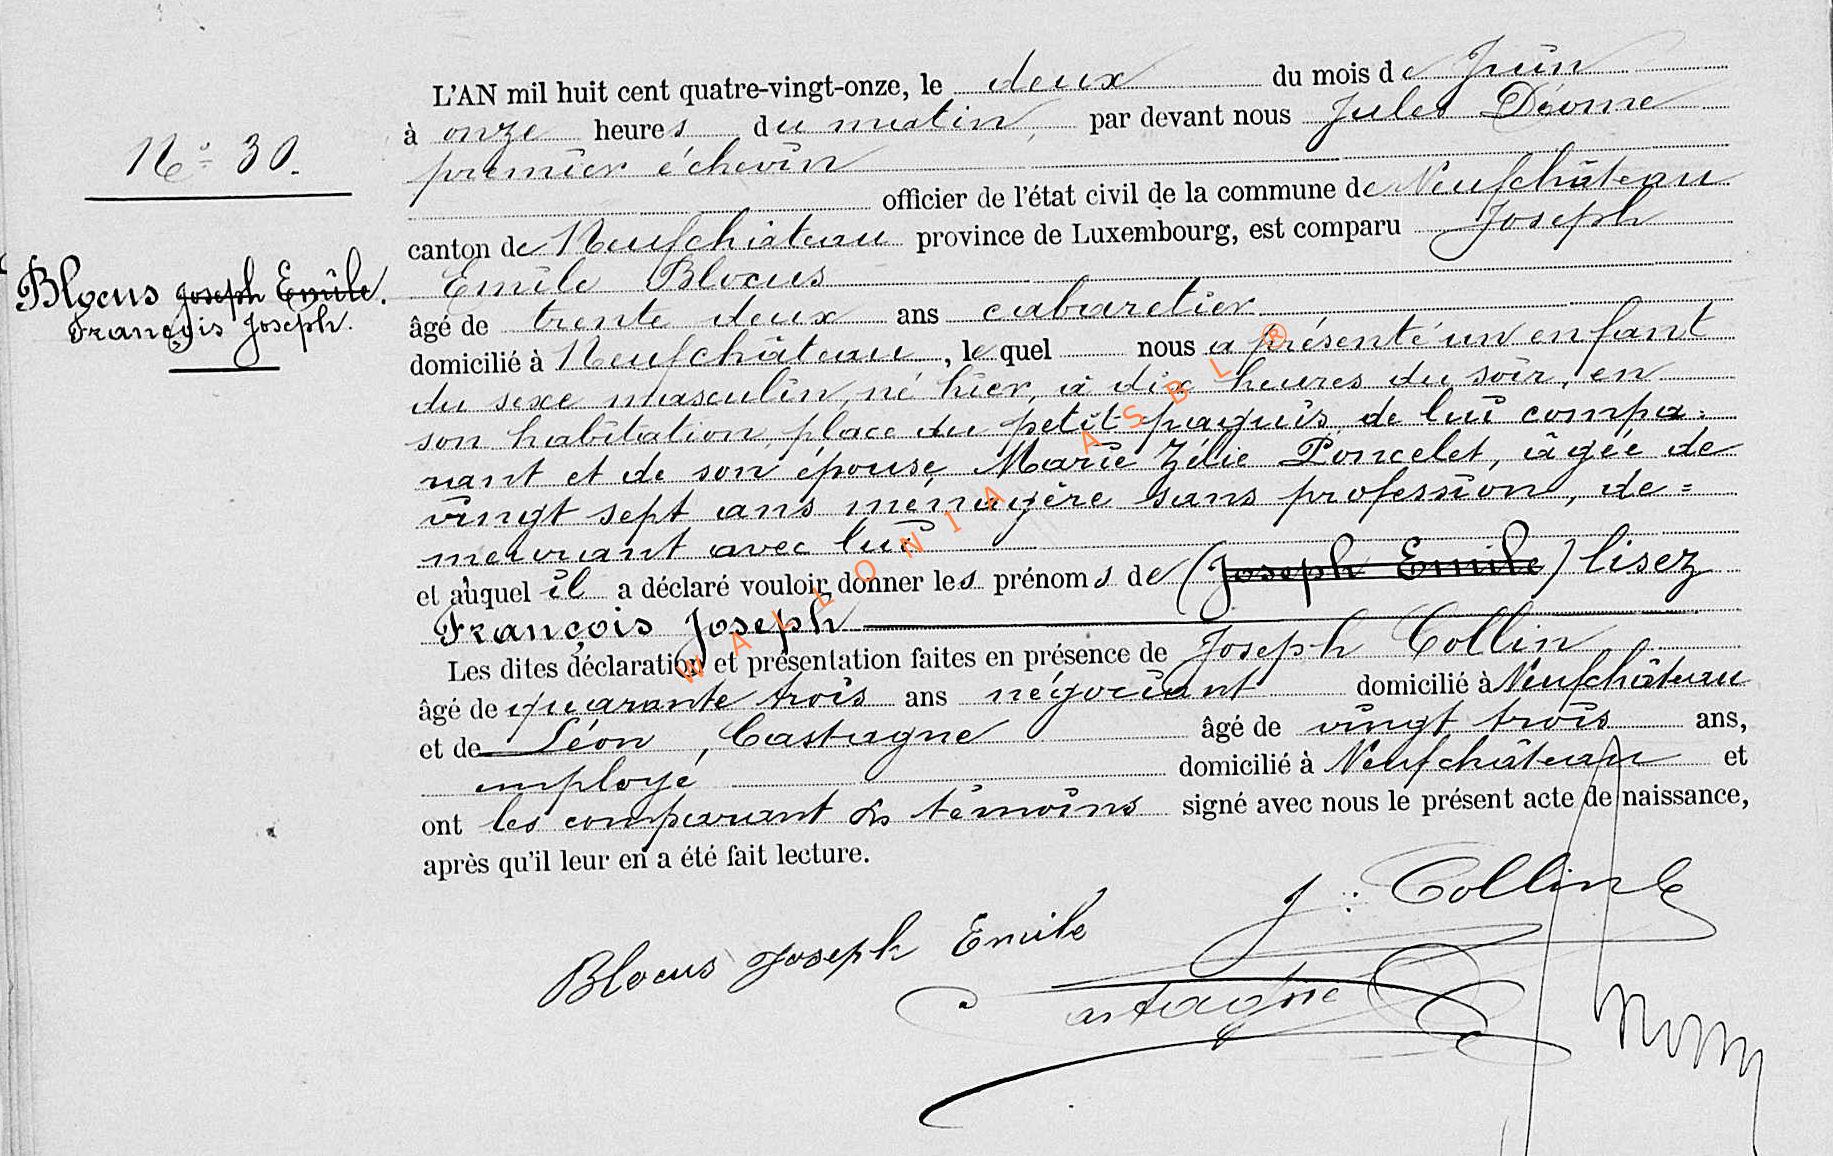 N° 30.
Blocus Joseph Emile.
François Joseph.
L'AN mil huit cent quatre-vingt-onze, le deux du mois de Juin
à onze heures du matin, par devant nous Jules Diome
premier échevin
officier de l'état civil de la commune de Neufchâteau
canton de Neufchâteau province de Luxembourg, est comparu Joseph
Emile Blocus
âgé de trente deux ans cabaretier
domicilié à Neufchâteau, lequel nous a présenté un enfant
du sexe masculin, né hier, à dix heures du soir, en
son habitation, place du petit paquis, de lui compa=
rant et de son épouse, Marie Zélie Poncelet, âgée de
vingt sept ans ménagère sans profession, de=
meurant avec lui
et auquel il a déclaré vouloir donner les prénoms de (Joseph Emile) lisez
François Joseph
Les dites déclaration et présentation faites en présence de Joseph Collin
âgé de quarante trois ans négociant domicilié à Neufchâteau
et de Léon, Castagne âgé de vingt trois ans,
employé domicilié à Neufchâteau et
ont les comparant & témoins signé avec nous le présent acte de naissance,
après qu'il leur en a été fait lecture.
J. Collin
Blocus Joseph Emile
Castagne
WALLONIA ASBL ®